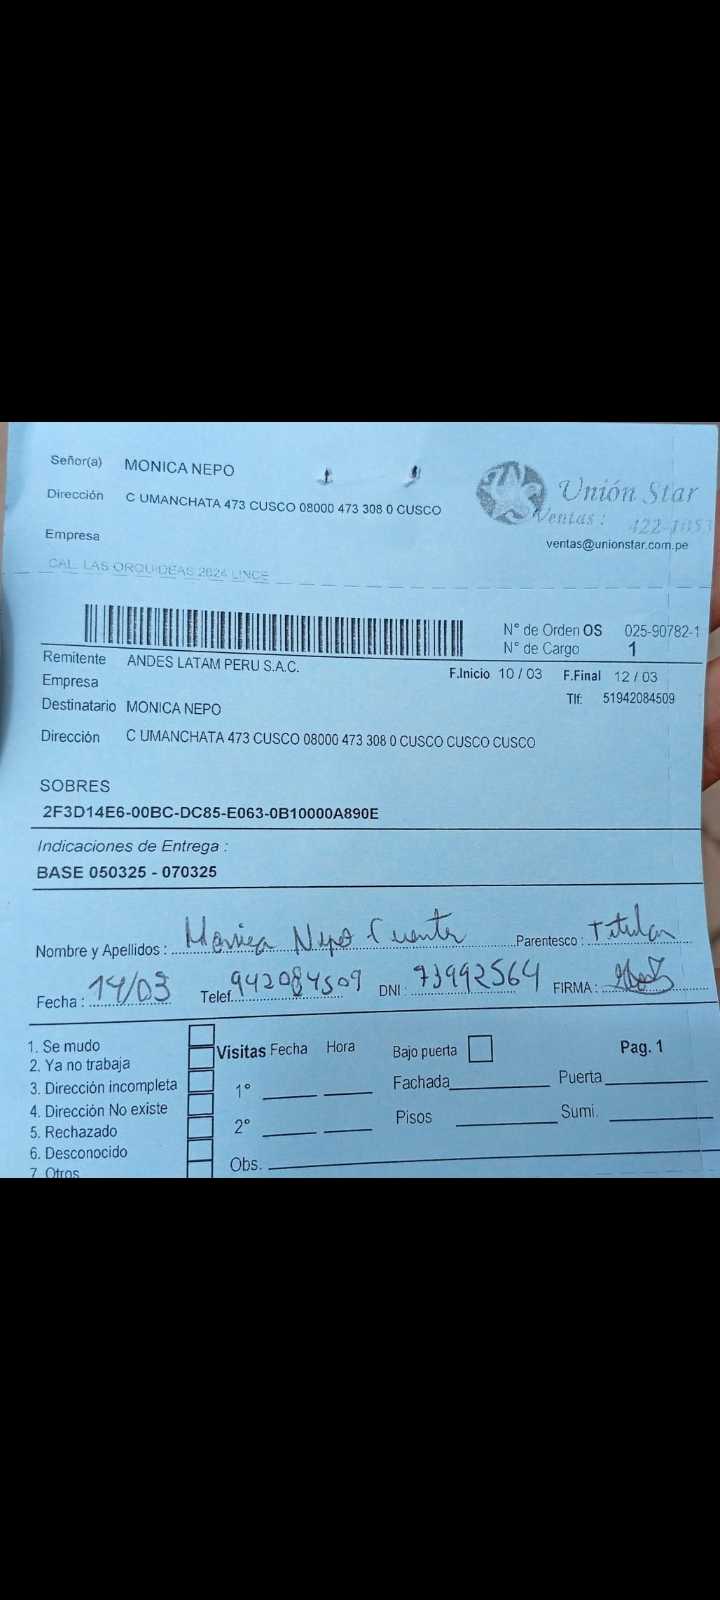 Señor(a) MONICA NEPO
Dirección C UMANCHATA 473 CUSCO 08000 473 308 0 CUSCO
Empresa
CAL. LAS ORQUIDEAS 2624 LINCE
Unión Star
Ventas : 422-1853
ventas@unionstar.com.pe
N° de Orden OS 025-90782-1
N° de Cargo 1
Remitente ANDES LATAM PERU S.A.C.
F.Inicio 10 / 03 F.Final 12 / 03
Empresa
Tlf: 51942084509
Destinatario MONICA NEPO
Dirección C UMANCHATA 473 CUSCO 08000 473 308 0 CUSCO CUSCO CUSCO
SOBRES
2F3D14E6-00BC-DC85-E063-0B10000A890E
Indicaciones de Entrega :
BASE 050325 - 070325
Nombre y Apellidos : Monica Nepo Parentesco : Titular
Fecha : 14/03 Telef. 942084509 DNI : 73992564 FIRMA :
1. Se mudo
2. Ya no trabaja
3. Dirección incompleta
4. Dirección No existe
5. Rechazado
6. Desconocido
7. Otros
Visitas Fecha Hora
1°
2°
Obs.
Bajo puerta
Fachada
Pisos
Pag. 1
Puerta
Sumi.